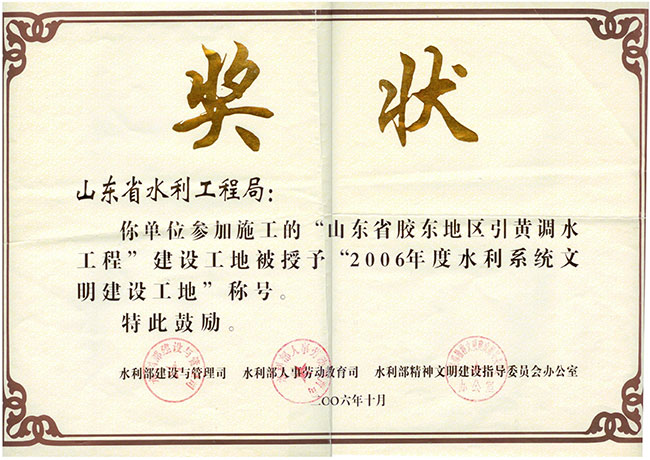 奖状
山东省水利工程局：
你单位参加施工的“山东省胶东地区引黄调水
工程”建设工地被授予“2006年度水利系统文
明建设工地”称号。
特此鼓励。
水利部建设与管理司 水利部人事劳动教育司 水利部精神文明建设指导委员会办公室
二〇〇六年十月